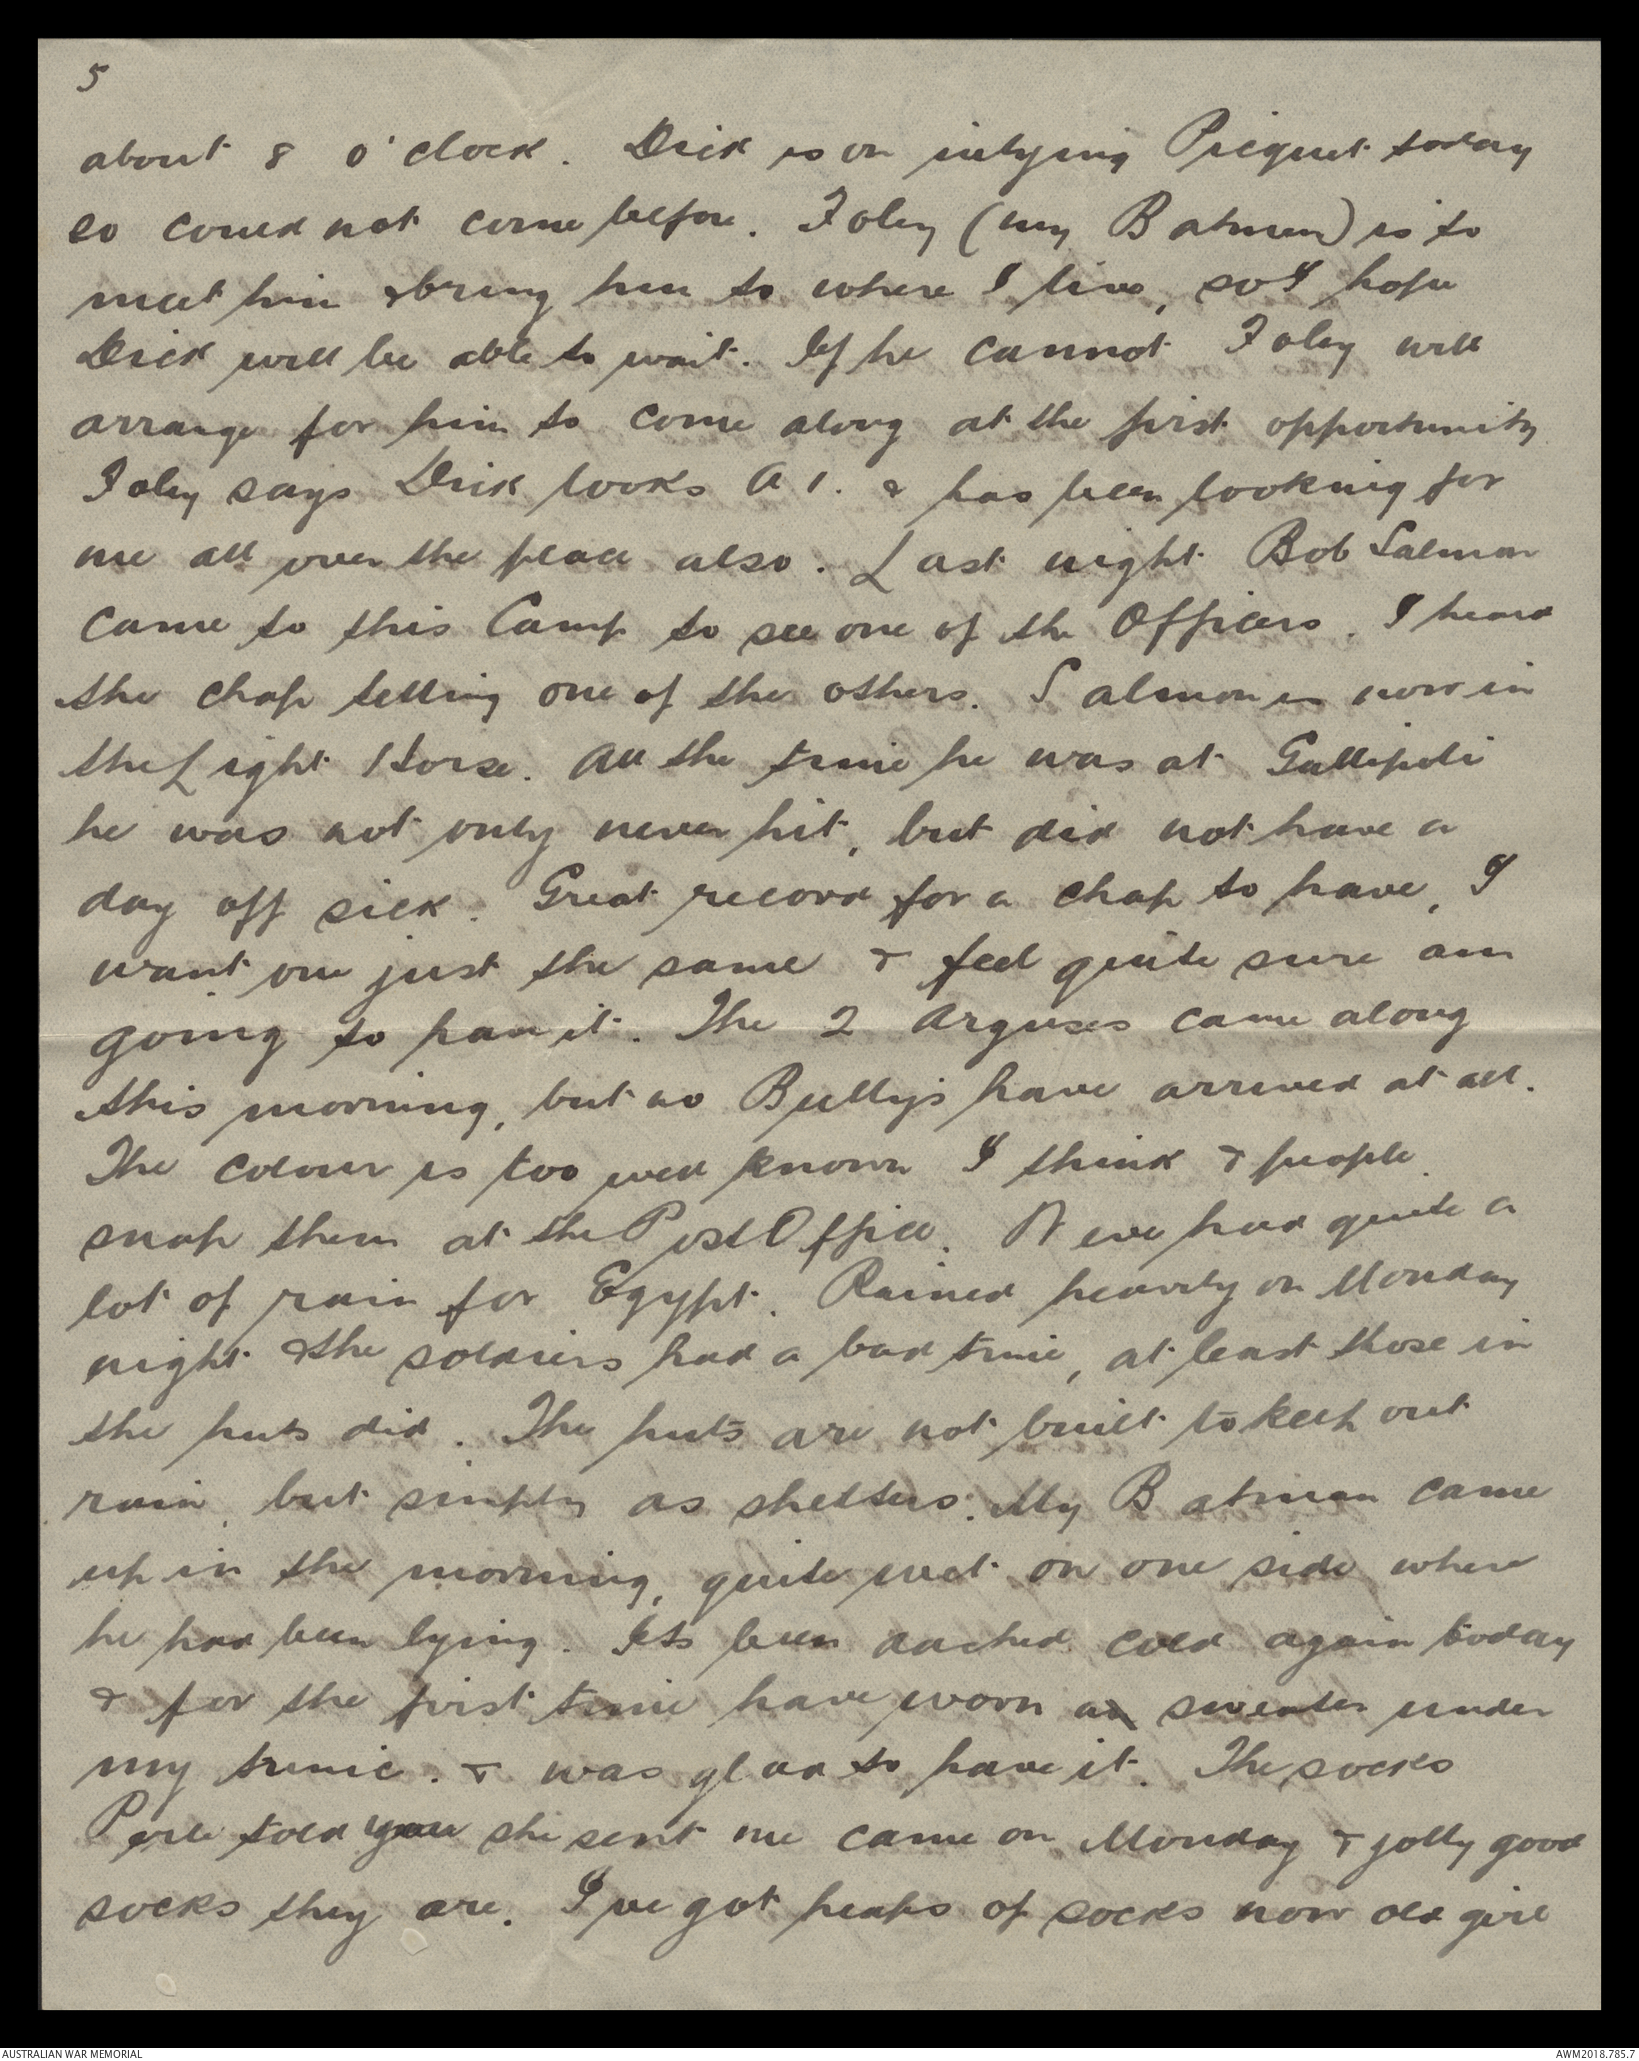 5
about 8 o'clock. Dick is on inlying Picquet today
so could not come before. Foley (my Batman) is to
meet him & bring him to where I live, so I hope
Dick will be able to wait. If he cannot Foley will
arrange for him to come along at the first opportunity
Foley says Dick looks A1. & has been looking for
me all over the place also. Last night Bob Salmon
came to this Camp to see one of the Officers. I heard
the chap telling one of the others. Salmon is now in
the Light Horse. All the time he was at Gallipoli
he was not only never hit, but did not have a
day off sick. Great record for a chap to have, I
want one just the same & feel quite sure am
going to have it. The 2 Arguses came along
this morning, but no Bully's have arrived at all.
The colour is too well known I think & people
snap them at the Post Office. Weve had quite a
lot of rain for Egypt. Rained heavily on Monday
night & the soldiers had a bad time, at least those in
the huts did. The huts are not built to keep out
rain, but simply as shelters. My Batman came
up in the morning, quite wet on one side where
he had been lying. Its been cold again today
& for the first time have worn a sweater under
my tunic. & was glad to have it. The socks
told you she sent me came on Monday & jolly good
socks they are. I've got heaps of socks now old girl
AUSTRALIAN WAR MEMORIAL
AWM2018.785.7